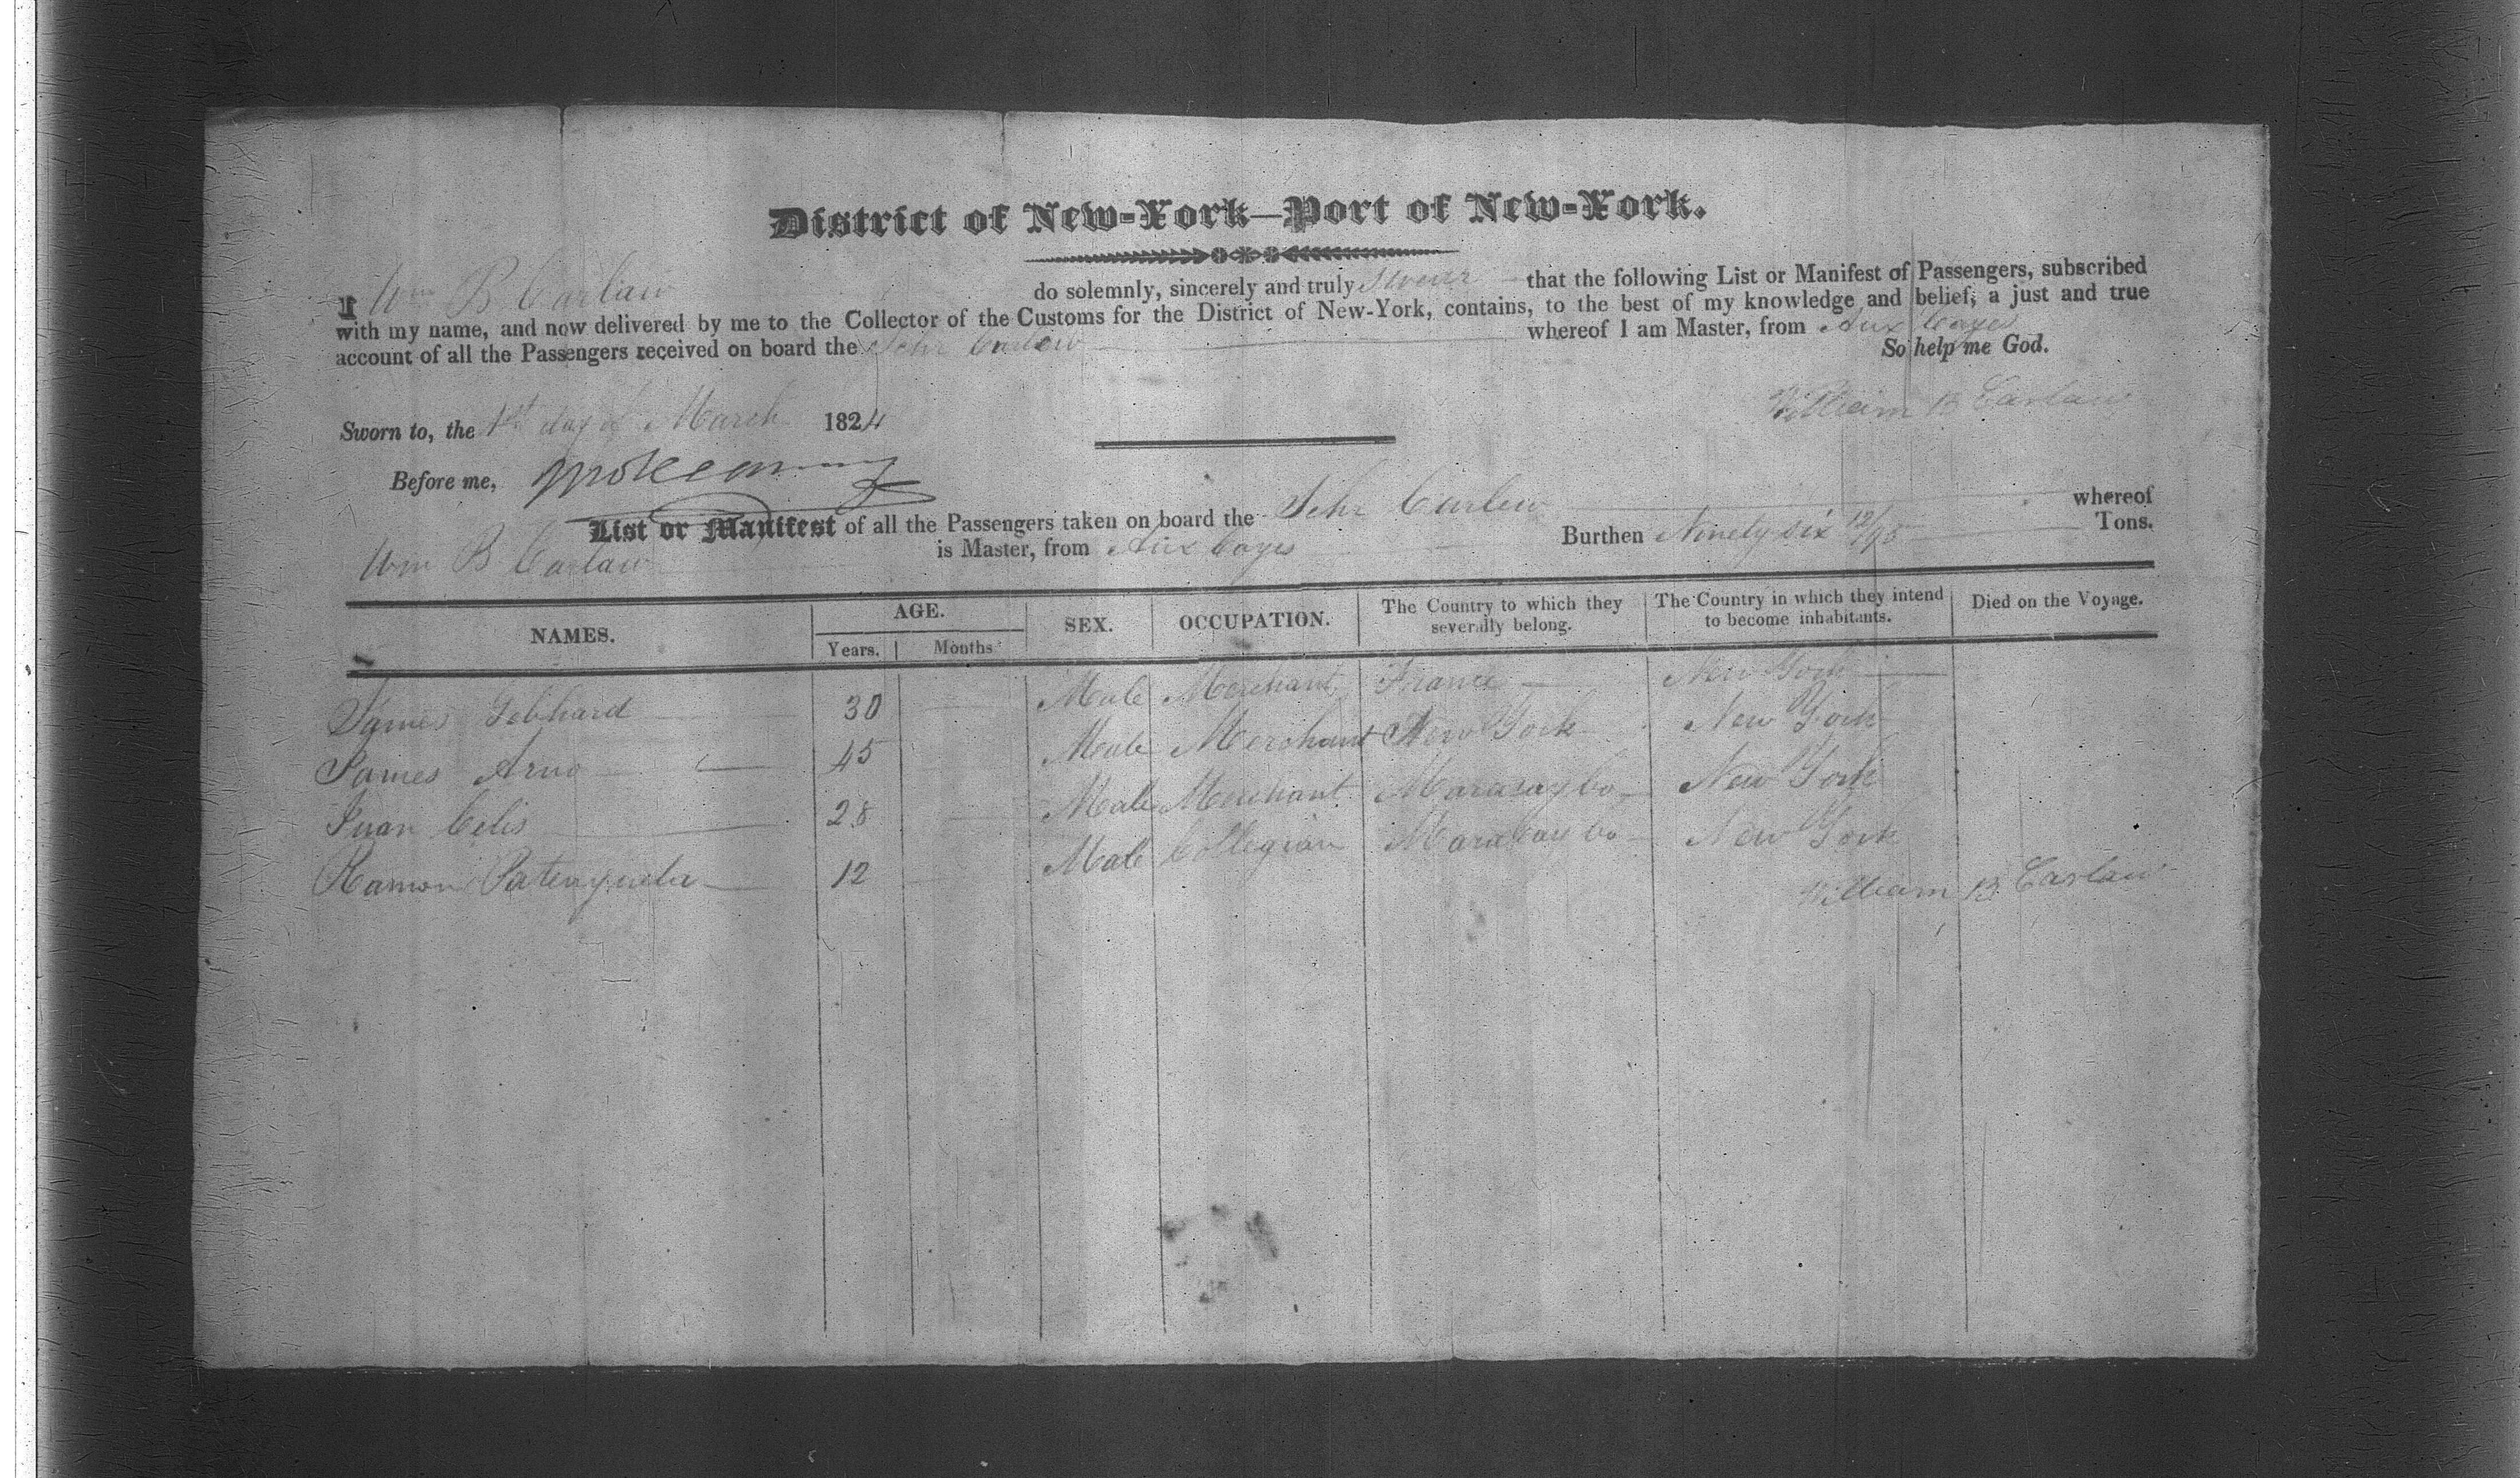 District of New-York—Port of New-York.
I Wm B Carlaw do solemnly, sincerely and truly swear that the following List or Manifest of Passengers, subscribed
with my name, and now delivered by me to the Collector of the Customs for the District of New-York, contains, to the best of my knowledge and belief, a just and true
account of all the Passengers received on board the Schr Curlew whereof I am Master, from Aux Cayes
So help me God.
Sworn to, the 1st day of March 1824 William B Carlaw
Before me,
List or Manifest of all the Passengers taken on board the Schr Curlew whereof
Wm B Carlaw is Master, from Aux Cayes Burthen Ninety six 12/95 Tons.
NAMES. AGE. SEX. OCCUPATION. The Country to which they severally belong. The Country in which they intend to become inhabitants. Died on the Voyage.
Years. Months
James Gebhard 30 Male Merchant France New York
James Arno 45 Male Merchant New York New York
Juan Celis 28 Male Merchant Marasaybo New York
Ramon 12 Male Collegian Maracaybo New York
William B Carlaw